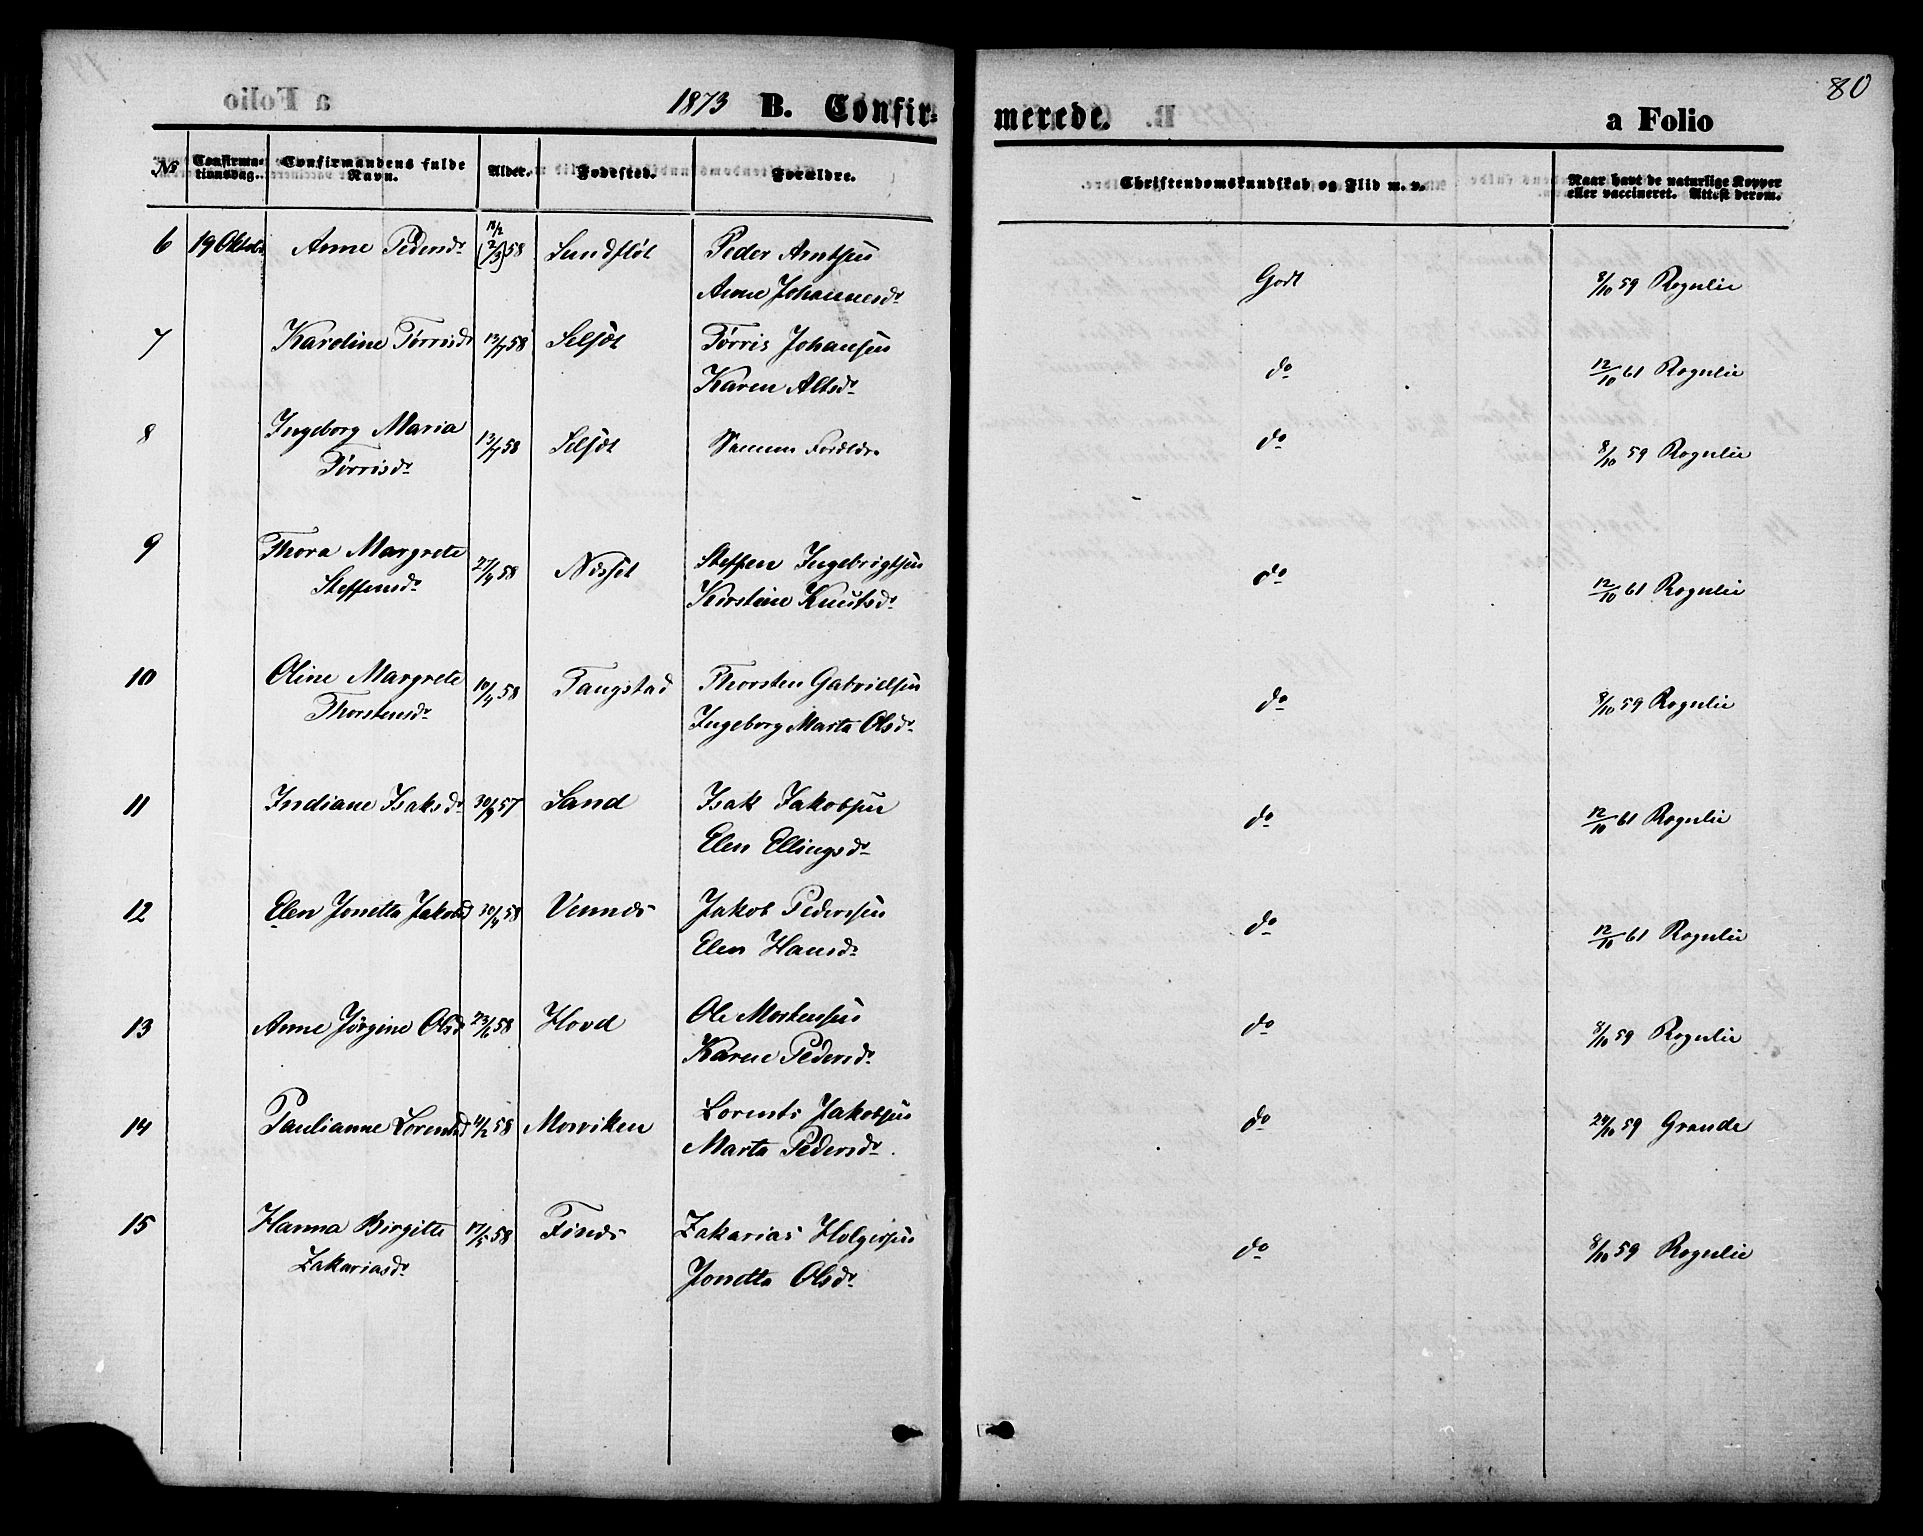 1873 B. Confir-
merede.
a Folio
80
No Confirma-tionsdag. Confirmandens fulde Navn. Alder. Fødested. Forældre. Christendomskundskab og Flid m. v. Naar havt de naturlige Kopper eller vaccineret. Attest derom.
6 19 Oktobr Anne Pedersdr 58 Sundfløt Peder Arntsen Godt 8/10 59 Rognlie
Anne Johannesdr
7 Karoline Tørrisdr 13/7 58 Selsøt Tørris Johansen do 12/10 61 Rognlie
Karen Altsdr
8 Ingeborg Maria 13/7 58 Selsøt Samme Forældre do 8/10 59 Rognlie
Tørrisdr
9 Thora Margrete 27/9 58 Steffen Ingebrigtsen do 12/10 61 Rognlie
Steffensdr Kirstine Knutsdr
10 Oline Margrete 10/4 58 Tangstad Thorsten Gabrielsen do 8/10 59 Rognlie
Thorstensdr Ingeborg Marta Olsdr
11 Indiane Isaksdr 30/9 57 Sand Isak Jakobsen do 12/10 61 Rognlie
Elen Ellingsdr
12 Elen Jonetta Jakobsd 30/4 58 Vennes Jakob Pedersen do 12/10 61 Rognlie
Elen Hansdr
13 Anne Jørgine Olsd 23/6 58 Hovd Ole Mortensen do 8/10 59 Rognlie
Karen Pedersdr
14 Paulianne Lorentsd 11/2 58 Morviken Lorents Jakobsen do 24/10 59 Grande
Marta Pedersdr
15 Hanna Birgitte 17/5 58 Fines Zakarias Holgersen do 8/10 59 Rognlie
Zakariasdr Jonetta Olsdr